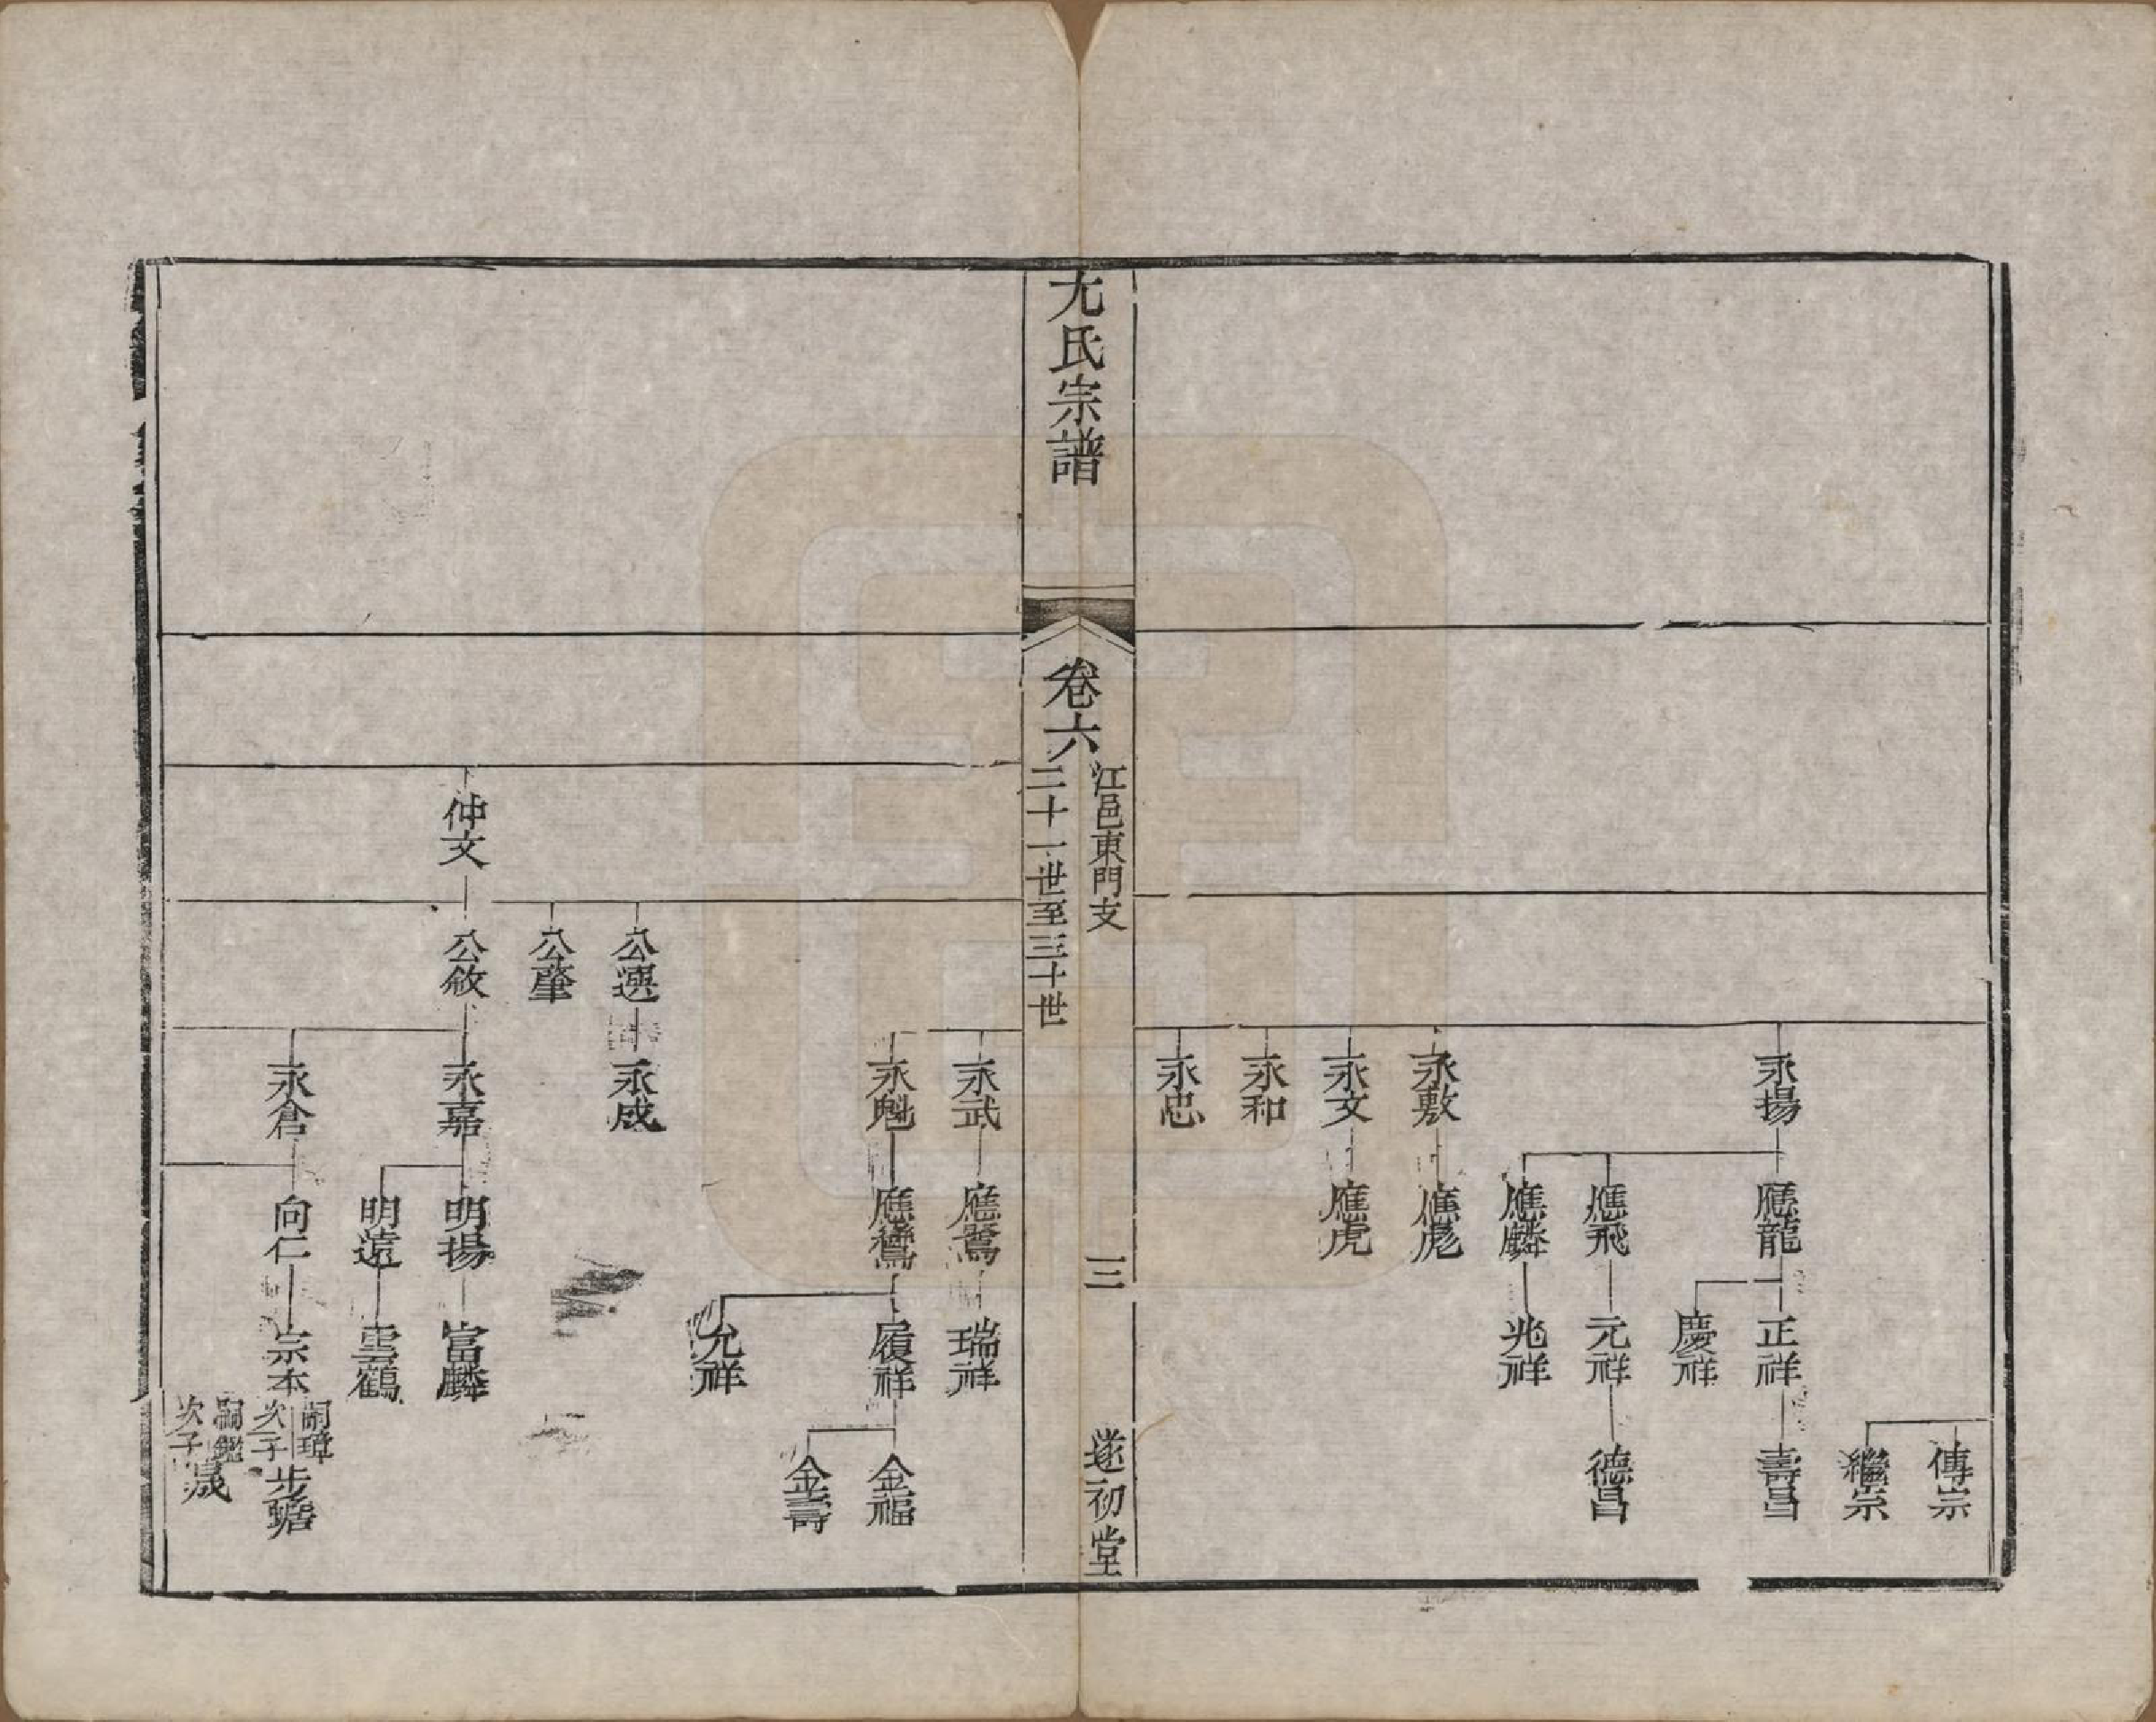 傳宗
繼宗
永揚
應龍
正祥
壽昌
慶祥
應飛
元祥
德昌
應麟
兆祥
永敷
應彪
永文
應虎
永和
永忠
尤氏宗譜
卷六
江邑東門支
二十一世至三十世
三
遂初堂
永武
應鶯
瑞祥
永魁
應鸞
履祥
金福
金壽
允祥
公選
永成
公肇
仲文
公敘
永嘉
明揚
富麟
明遠
雲鶴
永倉
向仁
宗本
嗣璋
次子
步蟾
嗣鑑
次子
晟